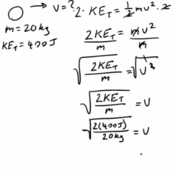 → v = ? 2 · KE_T = ½mv² · 2
m = 20kg
KE_T = 400J
2KE_T / m = mv² / m
√(2KE_T / m) = √v²
√(2KE_T / m) = v
√(2(400J) / 20kg) = v